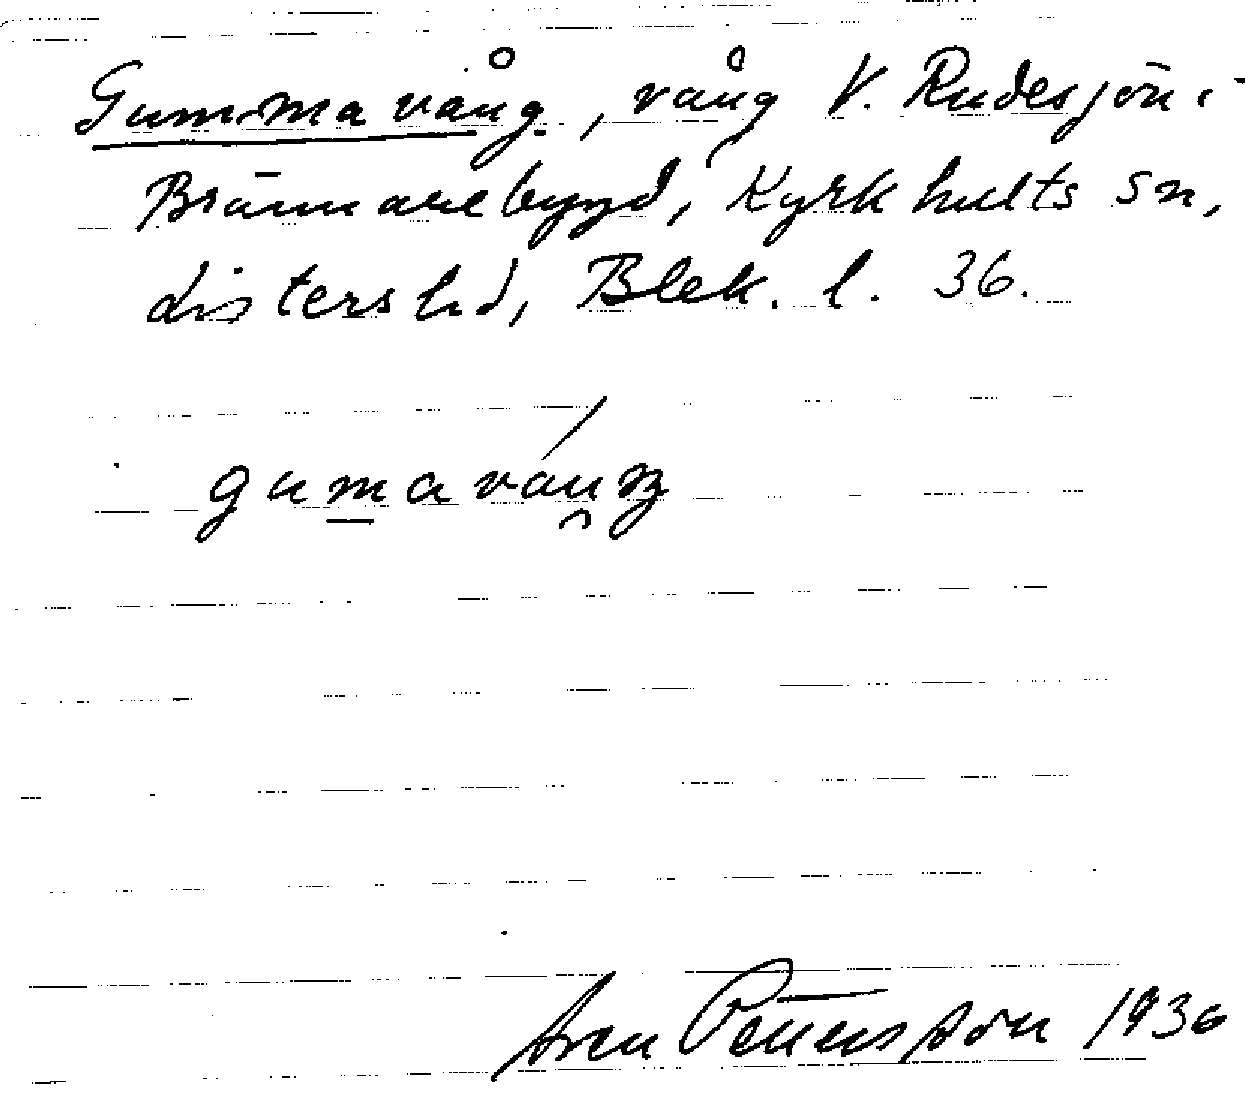 Gummavång, vång V. Rudesjön i
Brännarebygd, Kyrkhults sn,
Listers hd, Blek. l. 36.
gumavåuŋ
Sven Pettersson 1936